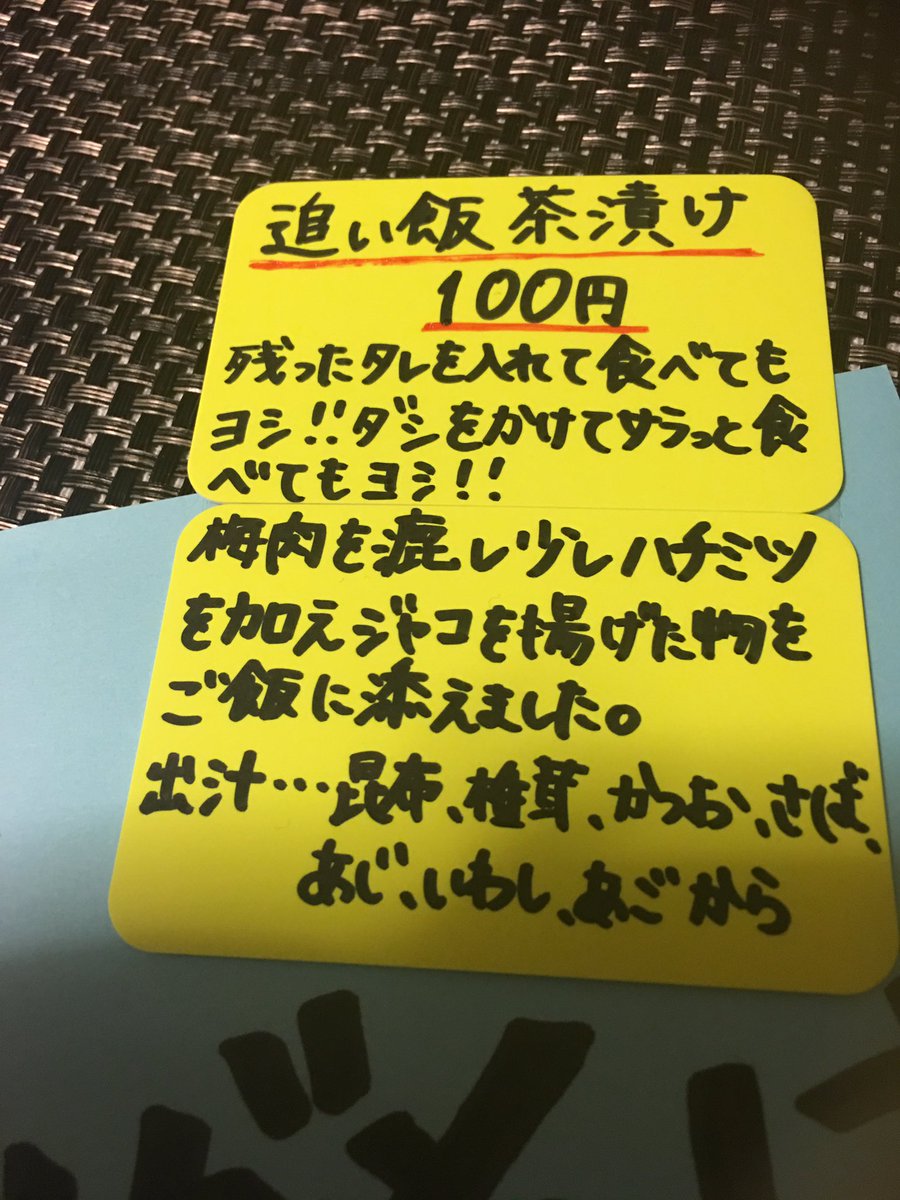 追い飯 茶漬け
100円
残ったタレを入れて食べても
ヨシ!!ダシをかけてサラっと食
べてもヨシ!!
梅肉を漉し少しハチミツ
を加えジャコを揚げた物を
ご飯に添えました。
出汁…昆布、椎茸、かつお、さば、
あじ、いわし、あご から